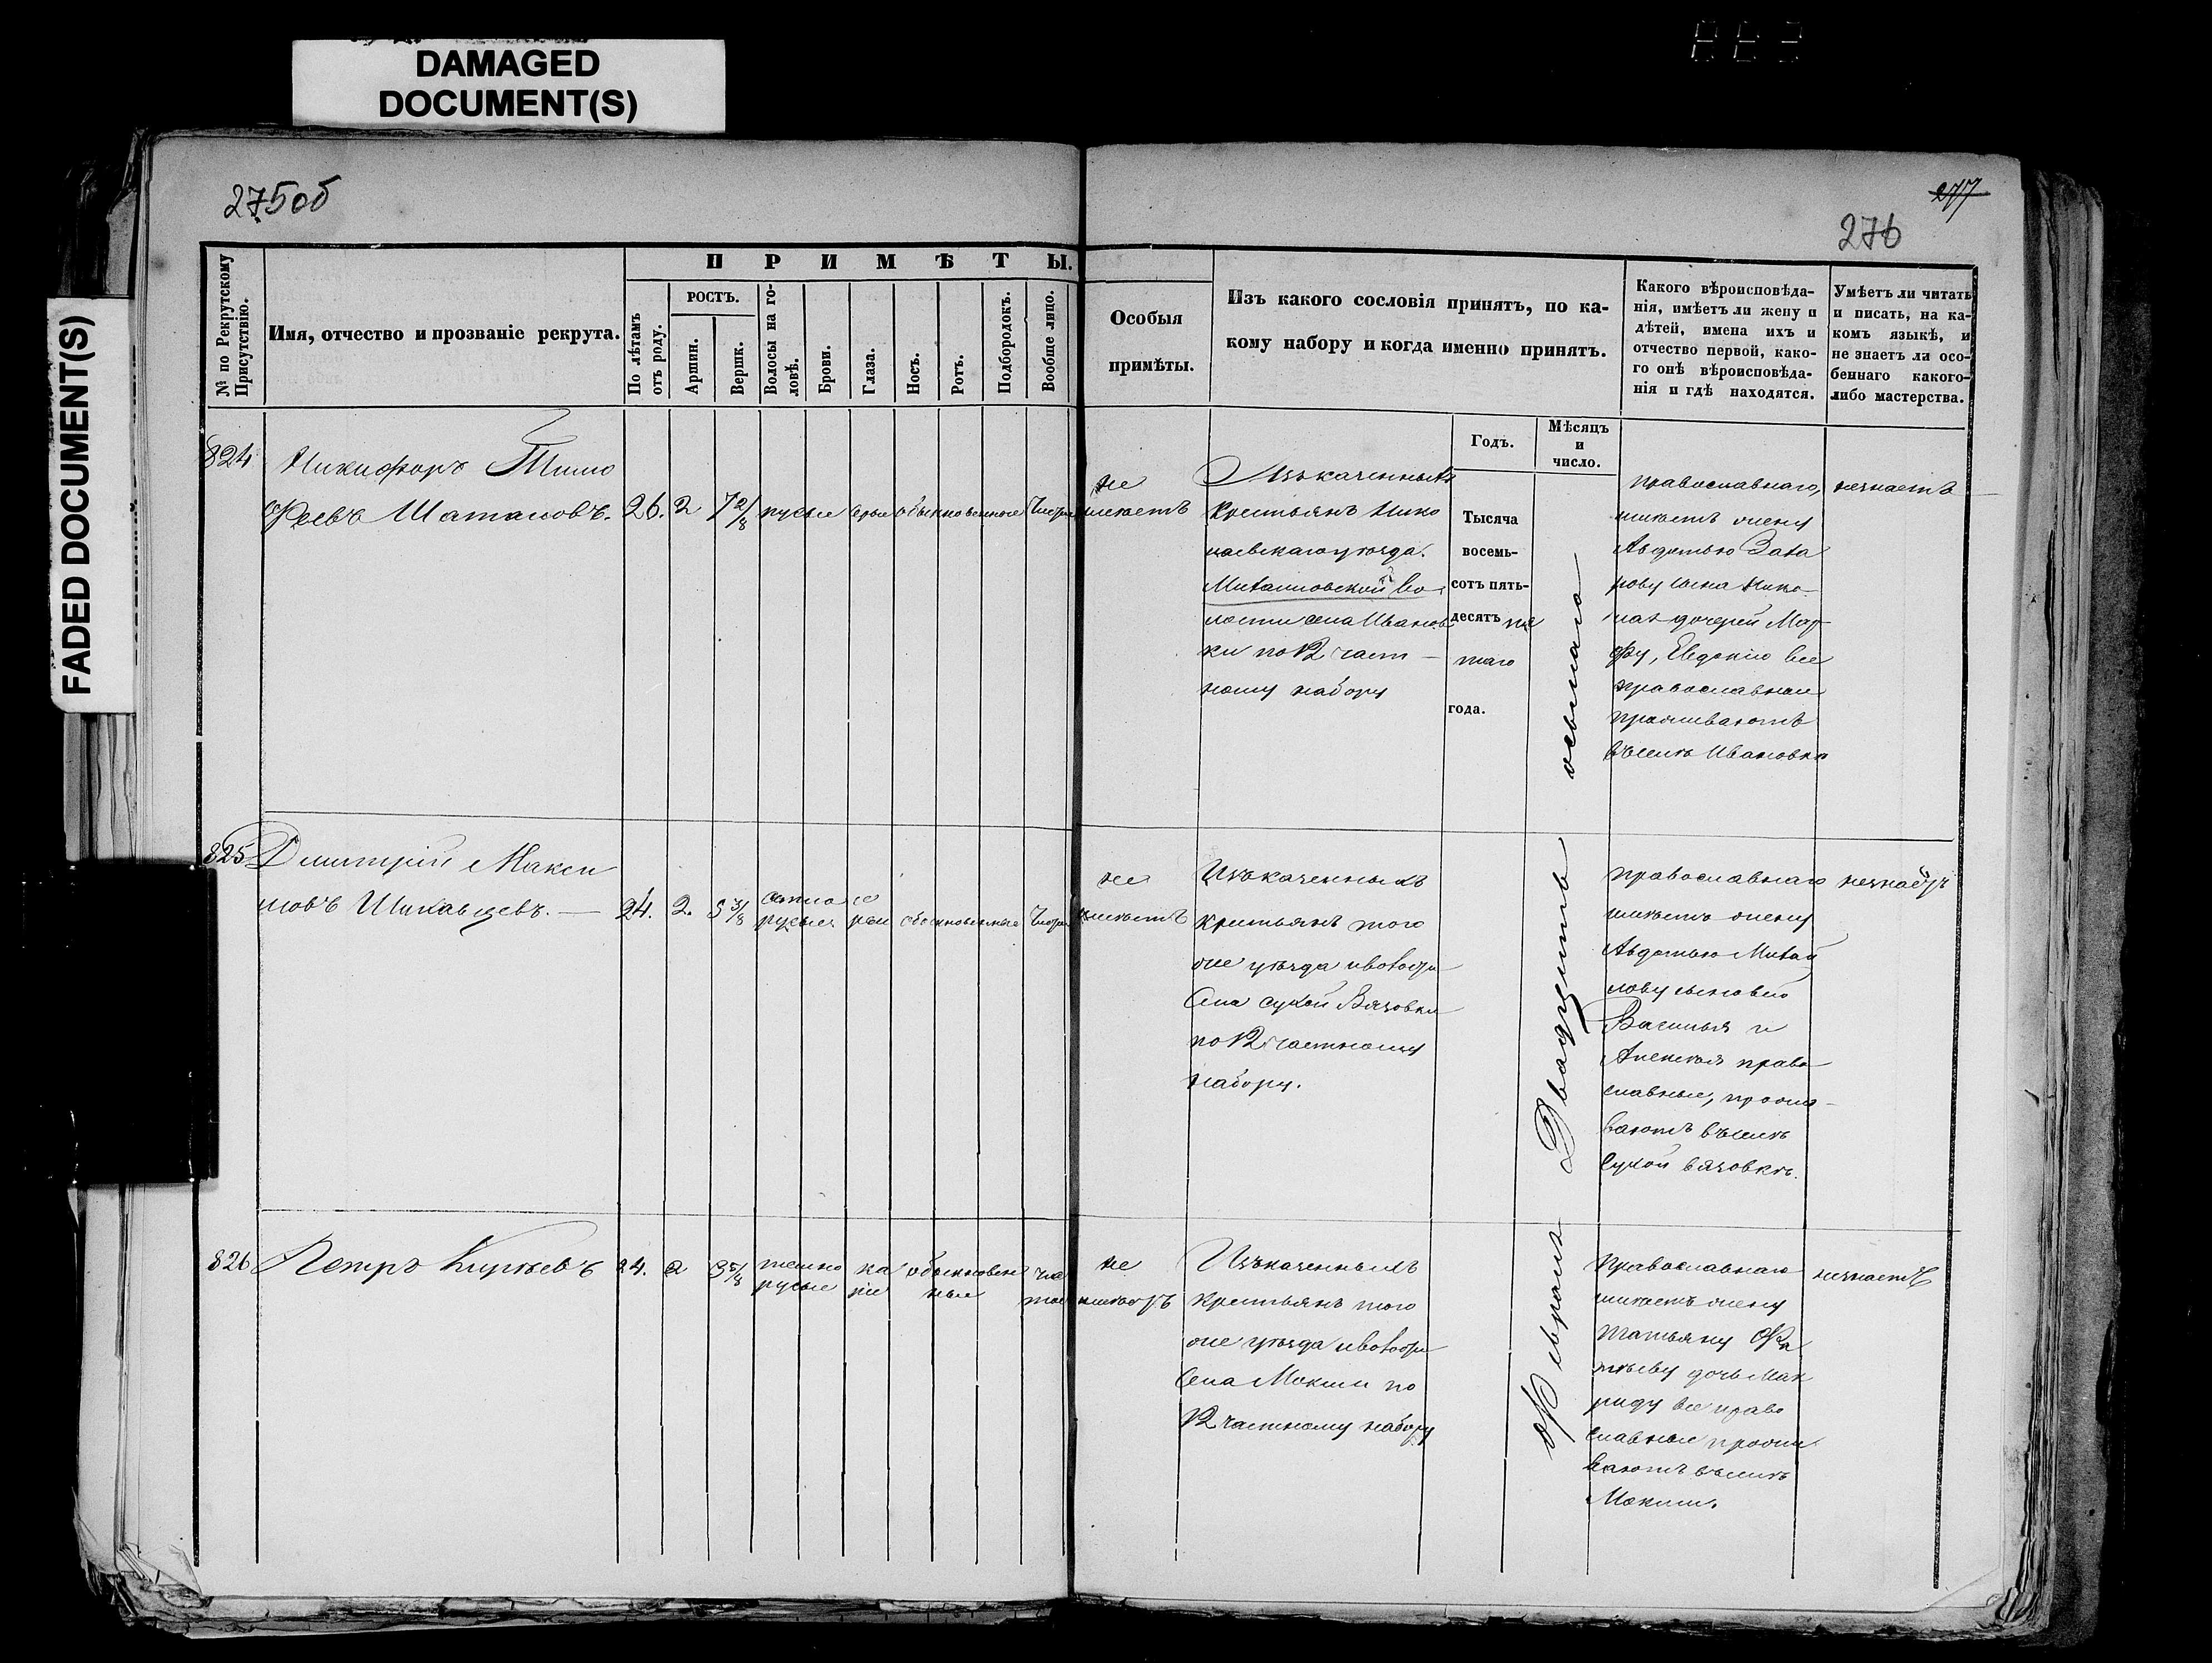 DAMAGED
DOCUMENT(S)
FADED DOCUMENT(S)
275об
277
276
№ по Рекрутскому
Присутствію.
Имя, отчество и прозваніе рекрута.
ПРИМѢТЫ.
По лѣтамъ
отъ роду.
РОСТЪ.
Аршин.
Вершк.
Волосы на го-
ловѣ.
Брови.
Глаза.
Носъ.
Ротъ.
Подбородокъ.
Вообще лицо.
Особыя
примѣты.
Изъ какого сословія принятъ, по ка-
кому набору и когда именно принятъ.
Какого вѣроисповѣда-
нія, имѣетъ ли жену и
дѣтей, имена ихъ и
отчество первой, како-
го онѣ вѣроисповѣда-
нія и гдѣ находятся.
Умѣетъ ли читать
и писать, на ка-
комъ языкѣ, и
не знаетъ ли осо-
беннаго какого-
либо мастерства.
Годъ.
Мѣсяцъ
и
число.
824
Никифоръ Тимо
феевъ Шаталовъ.
26. 2 7 2/8 русые серые обыкновенные чистое
не
имѣетъ
Изъ казенныхъ
крестьянъ Нико
лаевскаго уѣзда
Михайловской во
лости села Иванов
ки по 12 част
ному набору
Тысяча
восемь-
сотъ пять-
десятъ пя
таго
года.
Февраля Двадцать осьмаго
православнаго,
имѣетъ жену
Авдотью Заха
рову сына Нико-
лая дочерей Мар
фу, Евдокію все
православные
проживаютъ
въ селѣ Ивановке
незнаетъ
825
Дмитрій Макси
мовъ Шикавцевъ.
24. 2. 5 3/8 свѣтло
русые се
рые обыкновенные чистое
не
имѣетъ
Изъ казенныхъ
крестьянъ того
же уѣзда и волости
Села сухой Вязовки
по 12 частному
набору.
православнаго
имѣетъ жену
Авдотью Михай
лову сыновей
Василья и
Алексея право
славные, прожи-
ваютъ въ селѣ
Сухой вязовкѣ.
незнаетъ
826
Петръ Киреевъ
24. 2 3 5/8 темно
русые ка
ріе обыкновен
ные чис
тое
не
имѣетъ
Изъ казенныхъ
крестьянъ того
же уѣзда и волости
Села Мокши по
12 частному набору
Православнаго
имѣетъ жену
Татьяну
дочь Мак
риду все право
славные прожи
ваютъ въ селѣ
Мокши.
незнаетъ